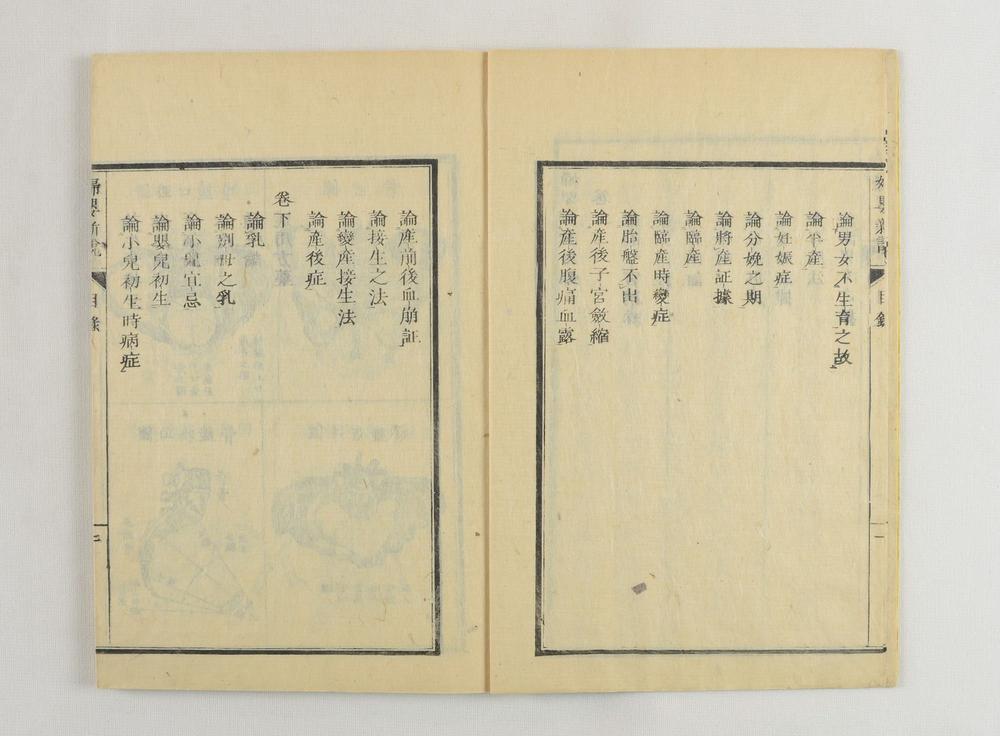 論男女不生育之故
論半產
論妊娠症
論分娩之期
論將產証據
論臨產
論臨產時變症
論胎盤不出
論產後子宮斂縮
論產後腹痛血露
論產前後血崩証
論接生之法
論變產接生法
論產後症
卷下
論乳
論別母之乳
論小兒宜忌
論嬰兒初生
論小兒初生時病症
婦嬰新說
目錄
二
目錄
一